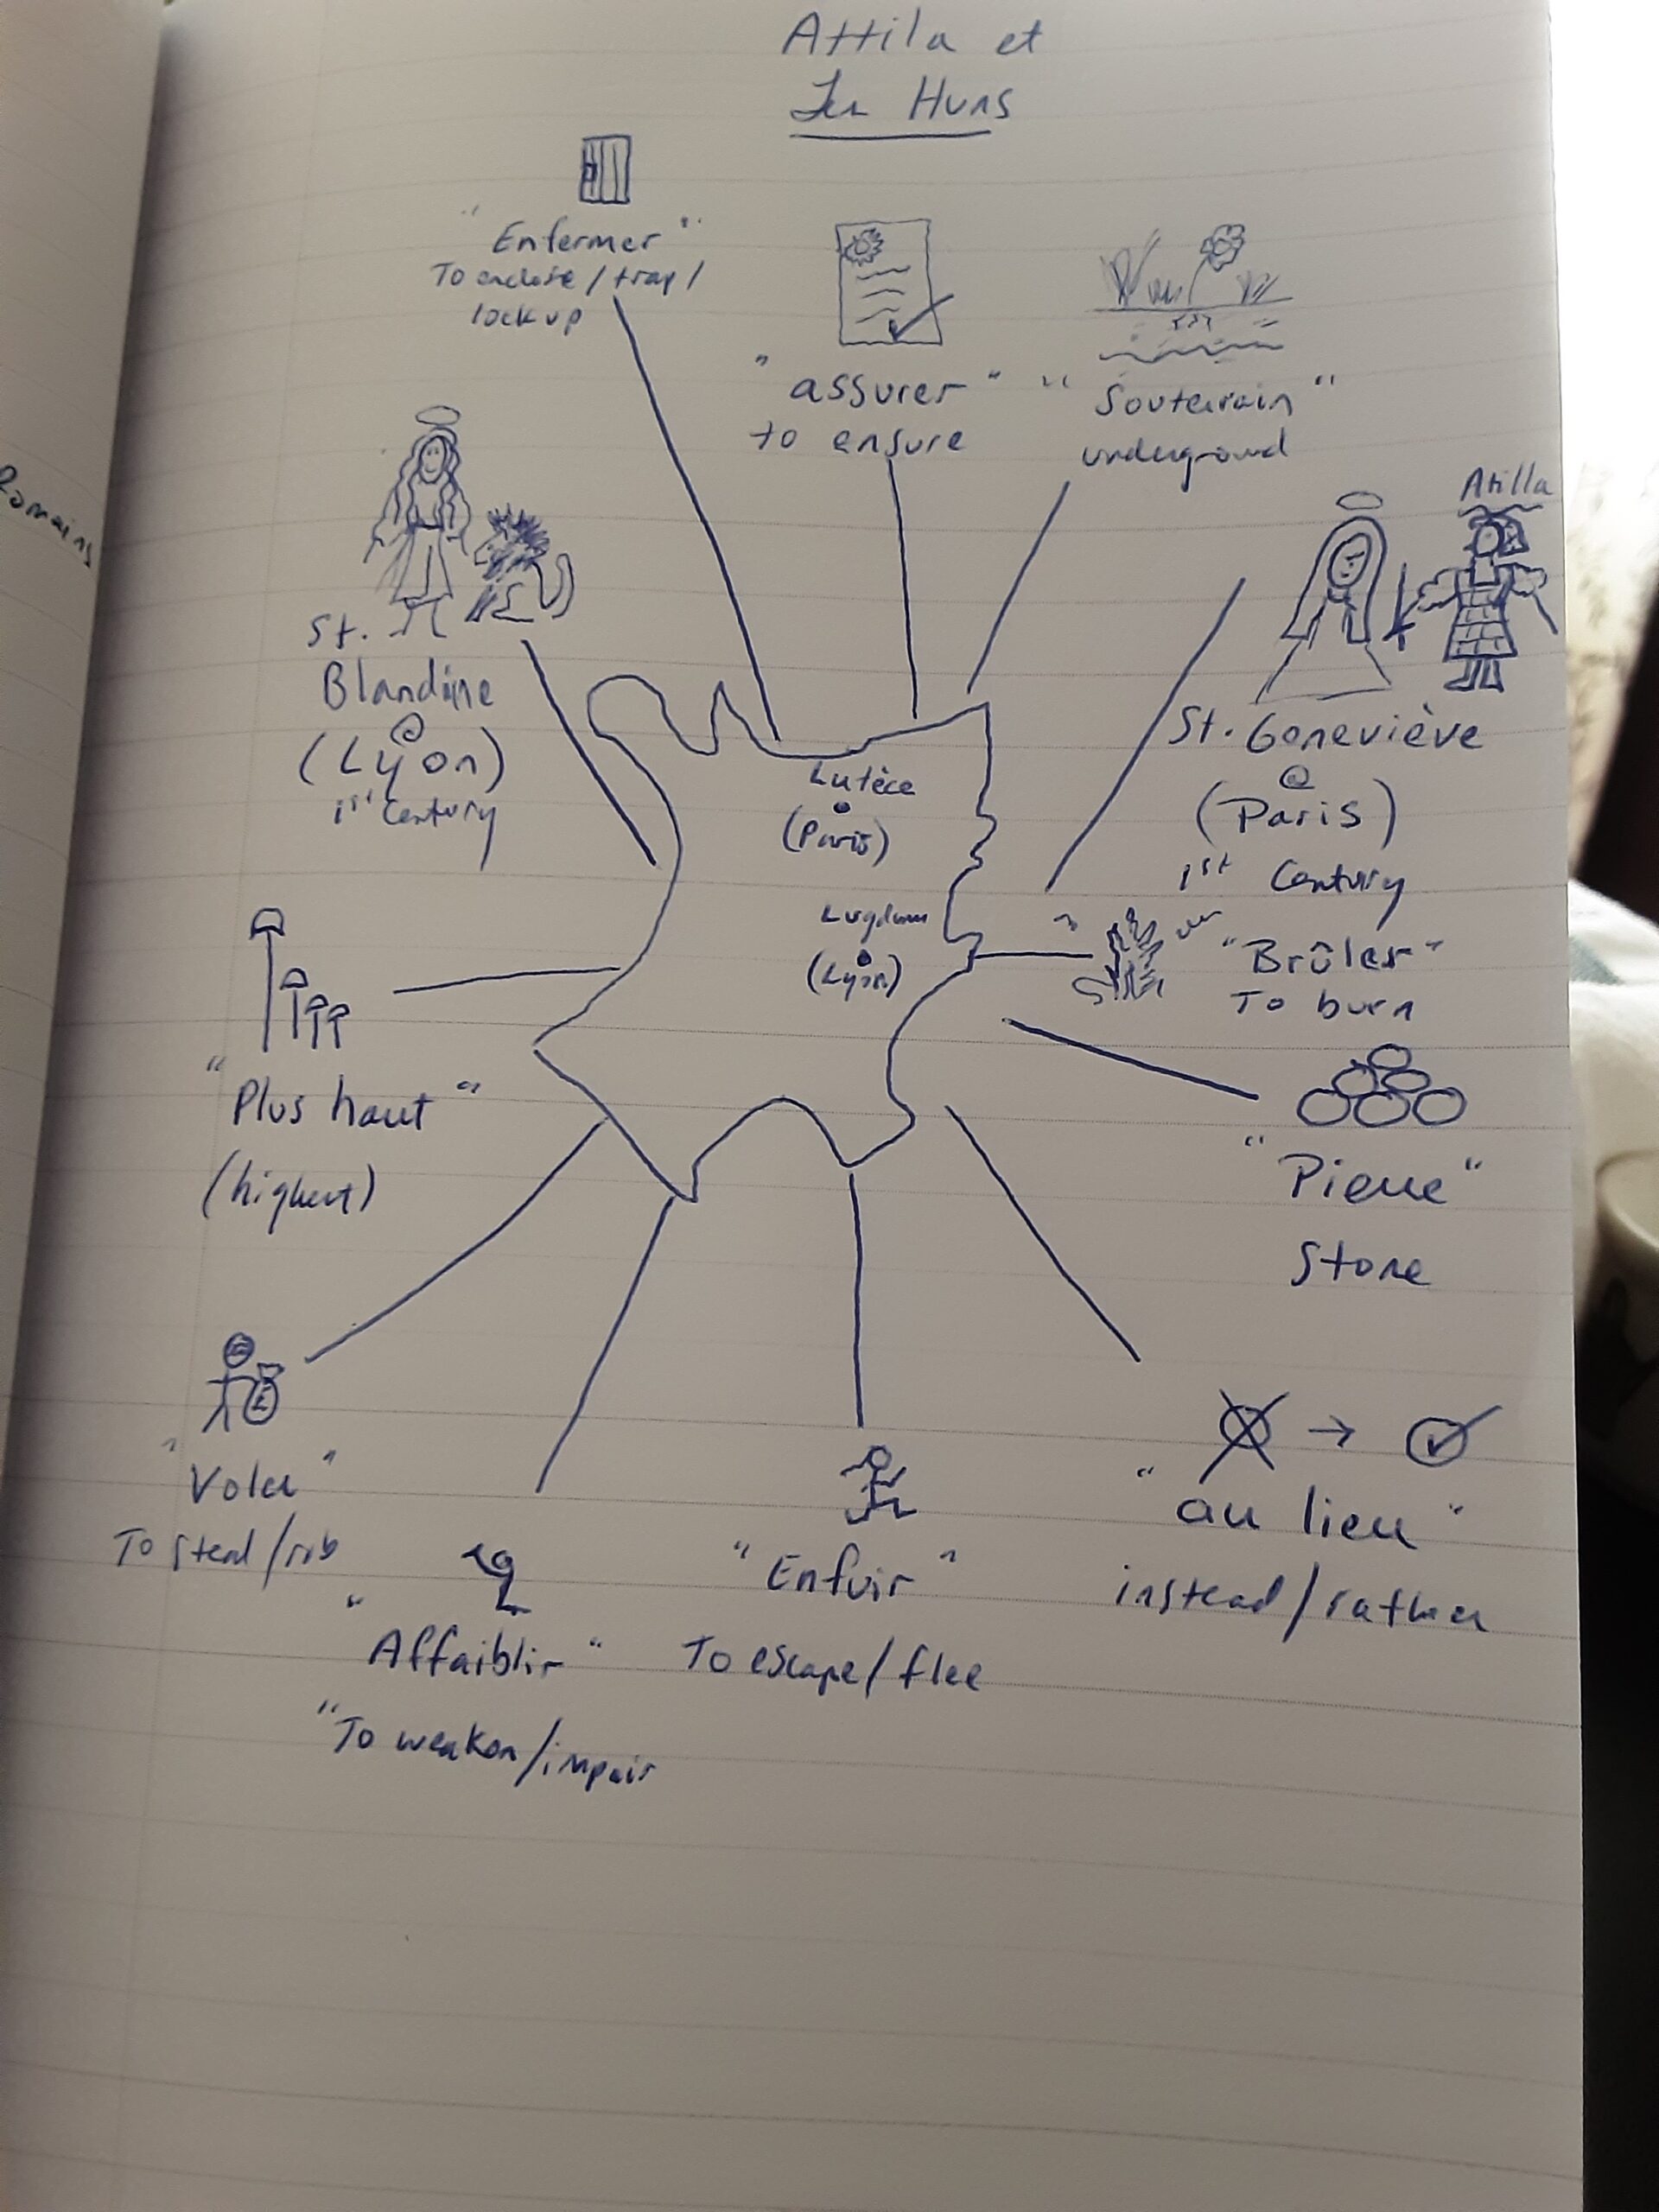 Attila et
Les Huns
"Enfermer"
To enclose / trap /
lock up
"assurer"
to ensure
"Souterrain"
underground
Romains
Atilla
St.
Blandine
@
(Lyon)
1st Century
St. Geneviève
@
(Paris)
1st Century
Lutèce
(Paris)
Lugdum
(Lyon)
"Brûler"
To burn
"Plus haut"
(highest)
"Pierre"
Stone
"Voler"
To steal/rob
"Affaiblir"
"To weaken/impair
"Enfuir"
To escape/flee
"au lieu"
instead/rather